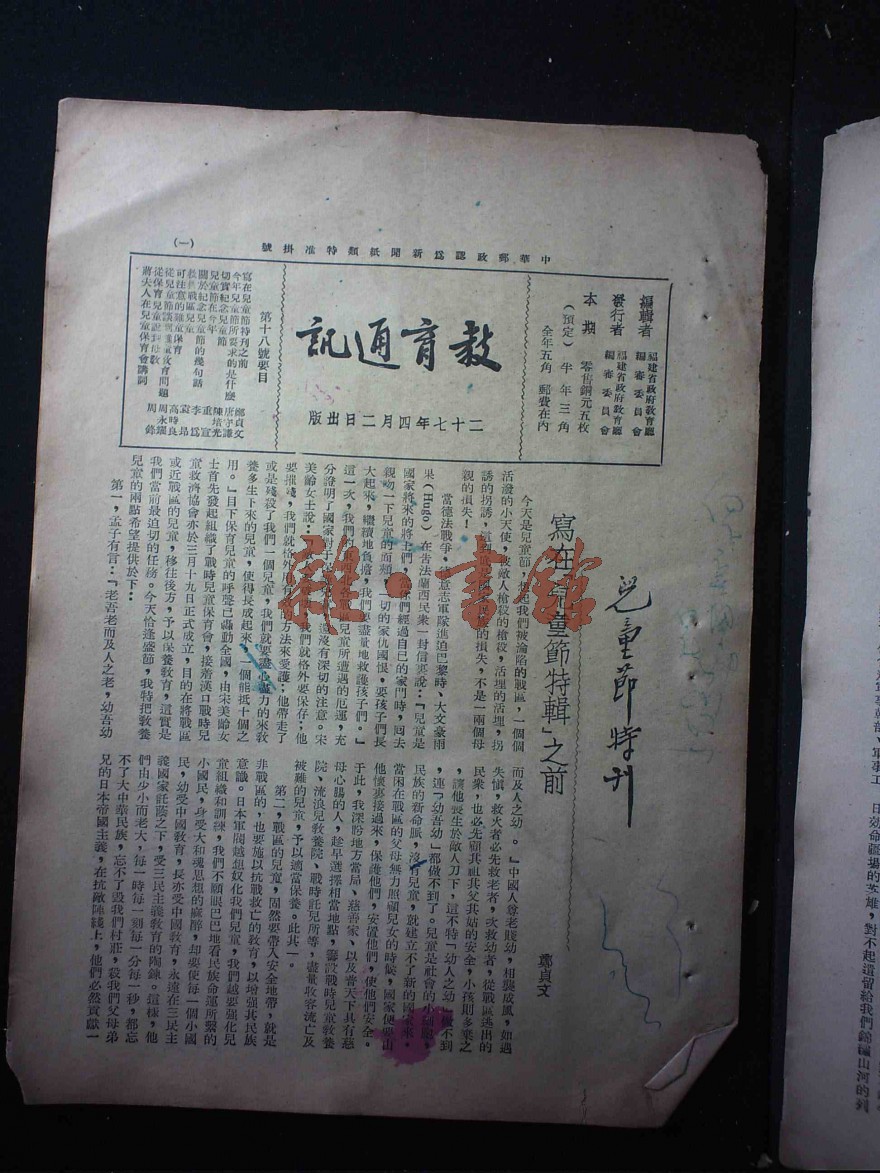 中華郵政認爲新聞紙類特准掛號
(一)
編輯者 福建省政府教育廳編審委員會
發行者 福建省政府教育廳編審委員會
本期 零售銅元五枚
(預定) 半年三角
全年五角 郵費在內
教育通訊
二十七年四月二日出版
第十八號要目
寫在兒童節特刊之前 鄭貞文
今年兒童節所要求的是什麼 唐守謙
切實紀念兒童節 陳培光
兒童節在今年 重宣
關於紀念兒童節的幾句話 李爲
救濟戰區兒童 袁昂
可注意的難童保育 高時良
從兒童節談到難童教育問題 周永耀
從保育兒童說到母教 周錄
蔣夫人在兒童保育會講詞
兒童節特刊
寫在「兒童節特輯」之前
鄭貞文
今天是兒童節,想起我們被淪陷的戰區,一個個
活潑的小天使,被敵人槍殺的槍殺,活埋的活埋,拐
誘的拐誘,這
損失,不是一兩個母
親的損失!
當德法戰爭,德意志軍隊進迫巴黎時、大文豪雨
果(Hugo)在告法蘭西民衆一封信裏說:「兒童是
國家將來的將士們,你們經過自己的家門時,囘去
親吻一下兒童的面頰,一切的家仇國恨,要孩子們長
大起來,繼續地負擔,我們要盡量地救護孩子們。」
這一次,我們
兒童所遭遇的厄運,充
分證明了國家對于
還沒有深切的注意。宋
美齡女士說:
我們就格外要保存;他
要摧殘,我們就格外用
方法來愛護;他帶走了
或是殘殺了我們一個兒童,我們就要盡心盡力的來教
養多生下來的兒童,使得長成起來,一個能抵十個之
用。」目下保育兒童的呼聲已轟動全國,由宋美齡女
士首先發起組織了戰時兒童保育會,接着漢口戰時兒
童救濟協會亦於三月十九日正式成立,目的在將戰區
或近戰區的兒童,移往後方,予以保養教育,這實是
我們當前最迫切的任務。今天恰逢盛節,我特把教養
兒童的兩點希望提供於下:
第一,孟子有言:「老吾老而及人之老,幼吾幼
而及人之幼。」中國人尊老賤幼,相襲成風,如遇
失愼,救火者必先救老者,次救幼者,從戰區逃出的
民衆,也必先顧其祖其父其姑的安全,小孩則多棄之
,讓他喪生於敵人刀下,這不特「幼人之幼」做不到
,連「幼吾幼」都做不到了。兒童是社會的小
民族的新命脈,沒有兒童,就建立不了新的國家來。
當困在戰區的父母無力照顧兒女的時候,國家便要由
他懷裏接過來,保護他們,安置他們,使他們安全。
于此,我深盼地方當局、慈善家、以及普天下具有慈
母心腸的人,趁早選擇相當地點,籌設戰時兒童教養
院、流浪兒教養院、戰時託兒所等,盡量收容流亡及
被難的兒童,予以適當保養。此其一。
第二,戰區的兒童,固然要帶入安全地帶,就是
非戰區的,也要施以抗戰救亡的教育,以增强其民族
意識。日本軍閥越想奴化我們兒童,我們越要強化兒
童組織和訓練,我們不願眼巴巴地看民族命運所繫的
小國民,身受大和魂思想的麻醉,却要使每一個小國
民,幼受中國教育,長亦受中國教育,永遠在三民主
義國家託蔭之下,受三民主義教育的陶鎔。這樣,他
們由少小而老大,每一時每一刻每一分每一秒,都忘
不了大中華民族,忘不了毀我們村莊,殺我們父母弟
兄的日本帝國主義,在抗敵陣綫上,他們必然貢獻一
雜·書館
日効命疆場的英雄,對不起遺留給我們錦繡山河的列